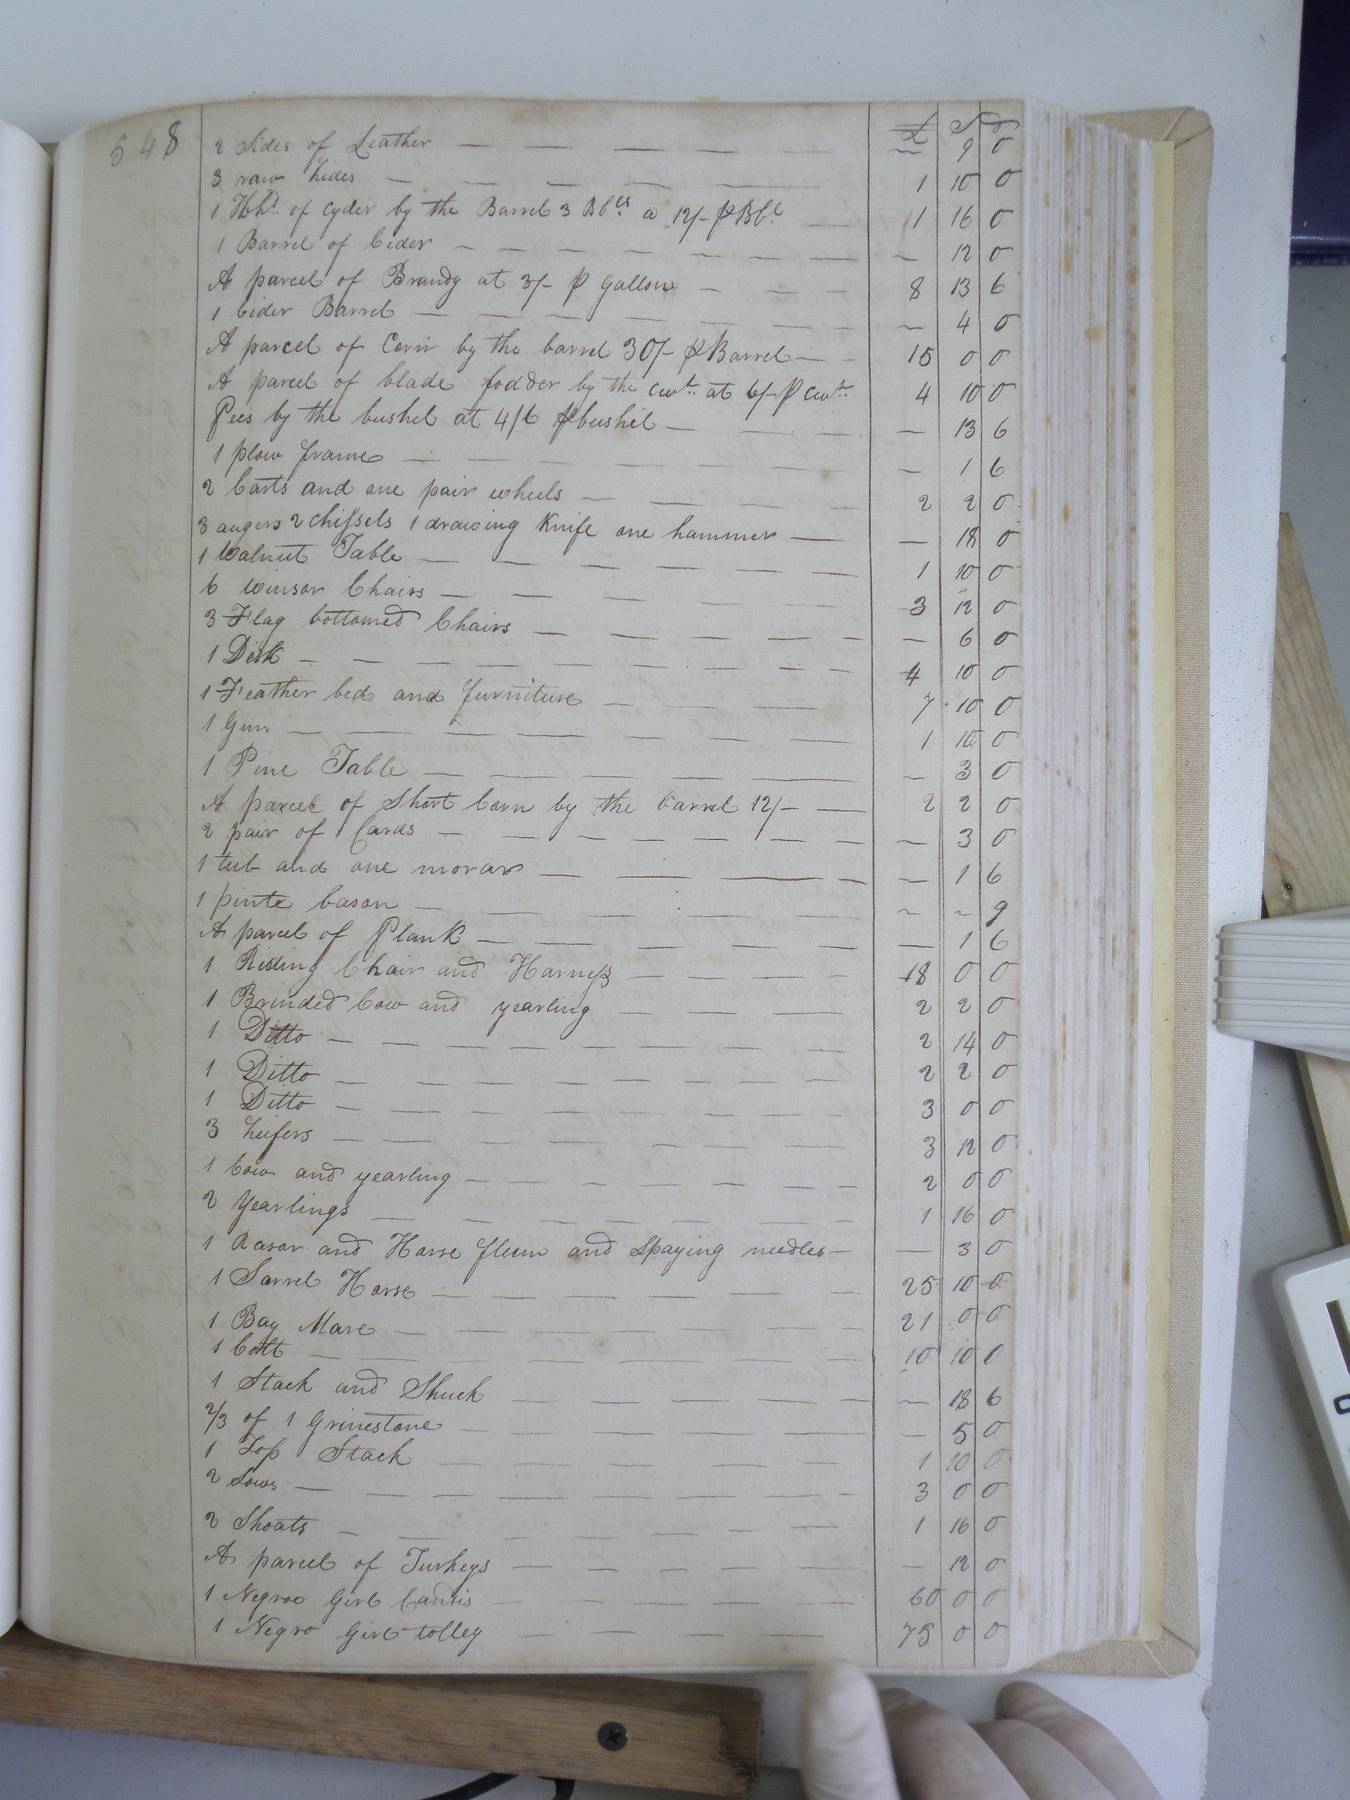 548
£ S d
2 Sides of Leather — 9 0
3 raw hides 1 10 0
1 Hhd. of Cyder by the Barrel 3 Bbls. a 12/- ⅌ Bbl 1 16 0
1 Barrel of Cider — 12 0
A parcel of Brandy at 3/- ⅌ Gallon 8 13 6
1 Cider Barrel — 4 0
A parcel of Corn by the barrel 30/- ⅌ Barrel 15 0 0
A parcel of blade fodder by the cwt. at 6/- ⅌ cwt. 4 10 0
Pees by the bushel at 4/6 ⅌ bushel — 13 6
1 plow frame — 1 6
2 Carts and one pair wheels 2 2 0
3 augers 2 chissels 1 drawing Knife one hammer — 18 0
1 Walnut Table 1 10 0
6 winsor Chairs 3 12 0
3 Flag bottomed Chairs — 6 0
1 Desk 4 10 0
1 Feather bed and furniture 7 10 0
1 Gun 1 10 0
1 Pine Table — 3 0
A parcel of Short Corn by the barrel 12/- 2 2 0
2 pair of Cards — 3 0
1 tub and one morar — 1 6
1 pinte bason — — 9
A parcel of Plank — 1 6
1 Riding Chair and Harness 18 0 0
1 Brinded Cow and yearling 2 2 0
1 Ditto 2 14 0
1 Ditto 2 2 0
1 Ditto 3 0 0
3 heifers 3 12 0
1 Cow and yearling 2 0 0
2 Yearlings 1 16 0
1 Rasor and Horse fleum and Spaying needles — 3 0
1 Sarrel Horse 25 10 0
1 Bay Mare 21 0 0
1 Colt 10 10 0
1 Stack and Shuck — 18 6
2/3 of 1 Grinestone — 5 0
1 Top Stack 1 10 0
2 Sows 3 0 0
2 Shoats 1 16 0
A parcel of Turkeys — 12 0
1 Negroe Girl 60 0 0
1 Negro Girl tolley 75 0 0